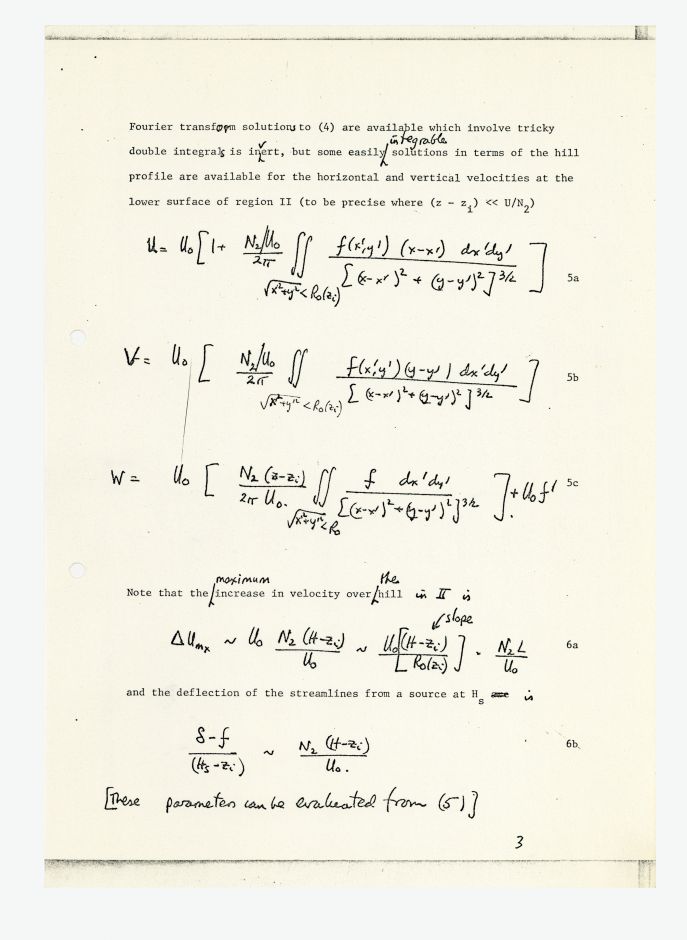 Fourier transform solutions to (4) are available which involve tricky
integrable
double integrals is invert, but some easily solutions in terms of the hill
profile are available for the horizontal and vertical velocities at the
lower surface of region II (to be precise where (z - z_i) << U/N_2)
U = U_0 [ 1 + N_2/U_0 / 2π ∬_{√x'^2+y'^2 < R_0(z_i)} f(x',y') (x-x') dx'dy' / [(x-x')^2 + (y-y')^2]^{3/2} ] 5a
V = U_0 [ N_2/U_0 / 2π ∬_{√x'^2+y'^2 < R_0(z_i)} f(x',y') (y-y') dx'dy' / [(x-x')^2 + (y-y')^2]^{3/2} ] 5b
W = U_0 [ N_2 (z-z_i) / 2π U_0. ∬_{√x'^2+y'^2 < R_0} f dx'dy' / [(x-x')^2 + (y-y')^2]^{3/2} ] + U_0 f' 5c
maximum the
Note that the increase in velocity over hill in II is
slope
ΔU_mx ~ U_0 N_2 (H-z_i) / U_0 ~ U_0 [ (H-z_i) / R_0(z_i) ] . N_2 L / U_0 6a
and the deflection of the streamlines from a source at H_s is
δ-f / (H_s-z_i) ~ N_2 (H-z_i) / U_0. 6b
[These parameters can be evaluated from (5)]
3